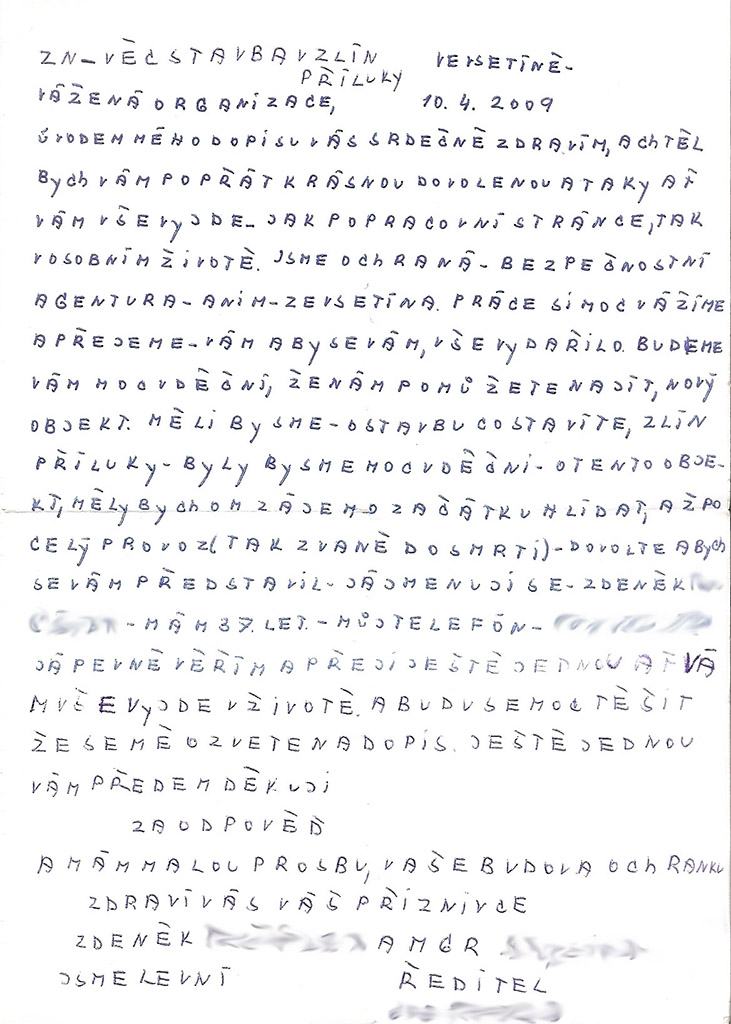 ZN–VĚC STAVBA VZLÍN VEVSETÍNĚ–
PŘÍLUKY
VÁŽENÁ ORGANIZACE, 10. 4. 2009
ÚVODEM MÉHO DOPISU VÁS SRDEČNĚ ZDRAVÍM, A chTĚL
Bych VÁM POPŘÁT KRÁSNOU DOVOLENOU A TAKy AŤ
VÁM VŠE VyJDE– JAK PO PRACOVNÍ STRÁNCE, TAK
VOSOBNÍM ŽIVOTĚ. JSME OchRANÁ– BEZPEČNOSTNÍ
AGENTURA– ANIM– ZEVSETÍNA. PRÁCE SI MOC VÁŽÍME
A PŘEJEME– VÁM ABy SE VÁM, VŠE VyDAŘILO. BUDEME
VÁM MOC VDĚČNÍ, ŽE NÁM POMŮŽETE NAJÍT, NOVÝ
OBJEKT. MĚLI By SME– O STAVBU CO STAVÍTE, ZLÍN
PŘÍLUKy– ByLy By SME MOC VDĚČNI– O TENTO OBJE–
KT, MĚLy Bychom ZÁJEM OZAČÁTKU HLÍDAT, A Ž PO
CELÝ PROVOZ (TAK ZVANĚ DO SMRTI)– DOVOLTE ABych
SE VÁM PŘEDSTAVIL– JÁ JMENUJI SE– ZDENĚK
– MÁM 37. LET.– MŮJ TELEFÓN–
JÁ PEVNĚ VĚŘÍM A PŘEJI JEŠTĚ JEDNOU AŤ VÁ
M VŠE VyJDE V ŽIVOTĚ. A BUDU SE MOC TĚŠIT
ŽE SE MĚ OZVETE NA DOPIS. JEŠTĚ JEDNOU
VÁM PŘEDEM DĚKUJI
ZA ODPOVĚĎ
A MÁM MALOU PROSBU, VAŠE BUDOVA OchRANKU
ZDRAVÍ VÁS VÁŠ PŘÍZNIVCE
ZDENĚK A MGR
JSME LEVNÍ ŘEDITEL